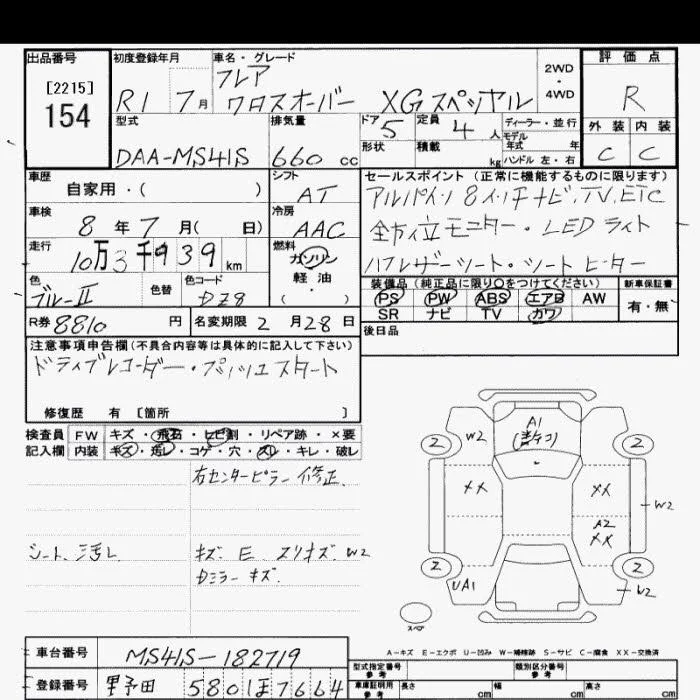 出品番号
[2215]
154
初度登録年月
R1 7月
車名・グレード
フレア
クロスオーバー XGスペシャル
2WD
・
4WD
評価点
R
外装 内装
C C
型式
DAA-MS41S
排気量
660 cc
ドア
5
形状
定員
4人
積載
kg
ディーラー・並行
モデル
年式 年
ハンドル 左・右
車歴
自家用・( )
シフト
AT
車検
8年7月( 日)
冷房
AAC
走行
10万3千939km
燃料
ガソリン
軽油
( ・ )
色
ブルーⅡ
色替
色コード
DZ8
R券 8810円
名変期限 2月28日
セールスポイント(正常に機能するものに限ります)
アルパイン8インチナビ.TV.ETC
全方位モニター・LEDライト
ハーフレザーシート・シートヒーター
装備品(純正品に限り○をつけてください)
PS PW ABS エアB AW
SR ナビ TV カワ
新車保証書
有・無
後日品
注意事項申告欄(不具合内容等は具体的に記入して下さい)
ドライブレコーダー・プッシュスタート
修復歴 有 [箇所 ]
検査員 FW キズ・飛石・ヒビ割・リペア跡・×要
記入欄 内装 キズ・汚レ・コゲ・穴・スレ・キレ・破レ
右センターピラー修正.
シート汚レ
キズ. E. スリキズ. W2
Dミラーキズ.
A1
2
W2
2
XX
XX
W2
A2
XX
2
UA1
2
W2
スペア
A-キズ E-エクボ U-凹み W-補修跡 S-サビ C-腐食 XX-交換済
車台番号 MS41S-182719
登録番号 野田 580 ほ 7664
型式指定番号
参考
類別区分番号
参考
車庫証明用
参考
長さ cm
幅 cm
高さ cm